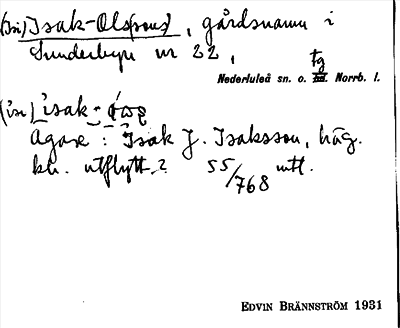 (Isi) Isak-Ols(sons), gårdsnamn i
Sunderbyn nr 22,
fg
Nederluleå sn. o. Norrb. l.
(isi) isak-
Ägare: Isak J. Isaksson, häg.
utflytt. 55/768 mtl.
EDVIN BRÄNNSTRÖM 1931